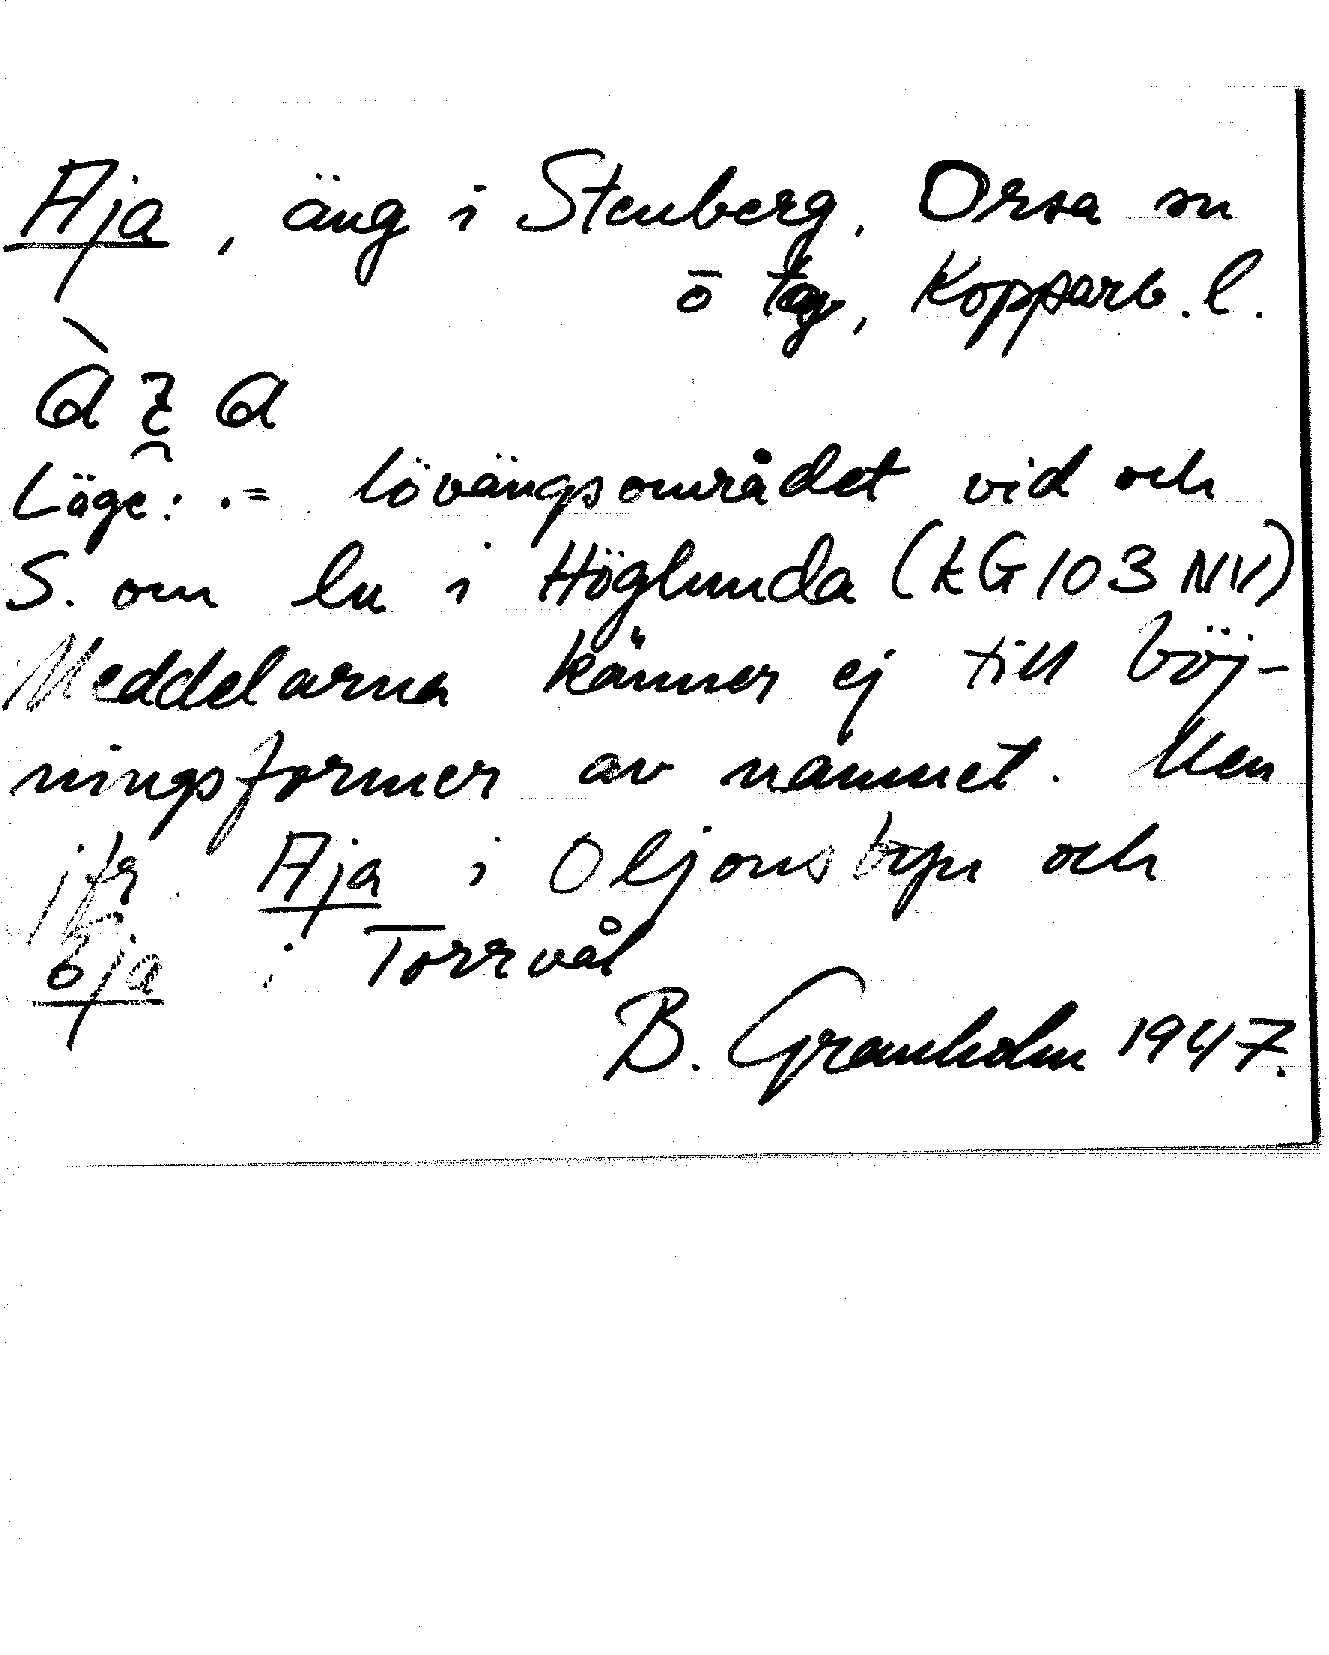 Aja, äng i Stenberg, Orsa sn
ō tg, Kopparb. l.
Läge: .= lövängsområdet vid och
S. om ln i Höglunda (LG 103 NV)
Meddelarna känner ej till böj-
ningsformer av namnet. Men
jfr. Aja i Oljonsbyn och
Öja i Torrvål
B. Granholm 1947.